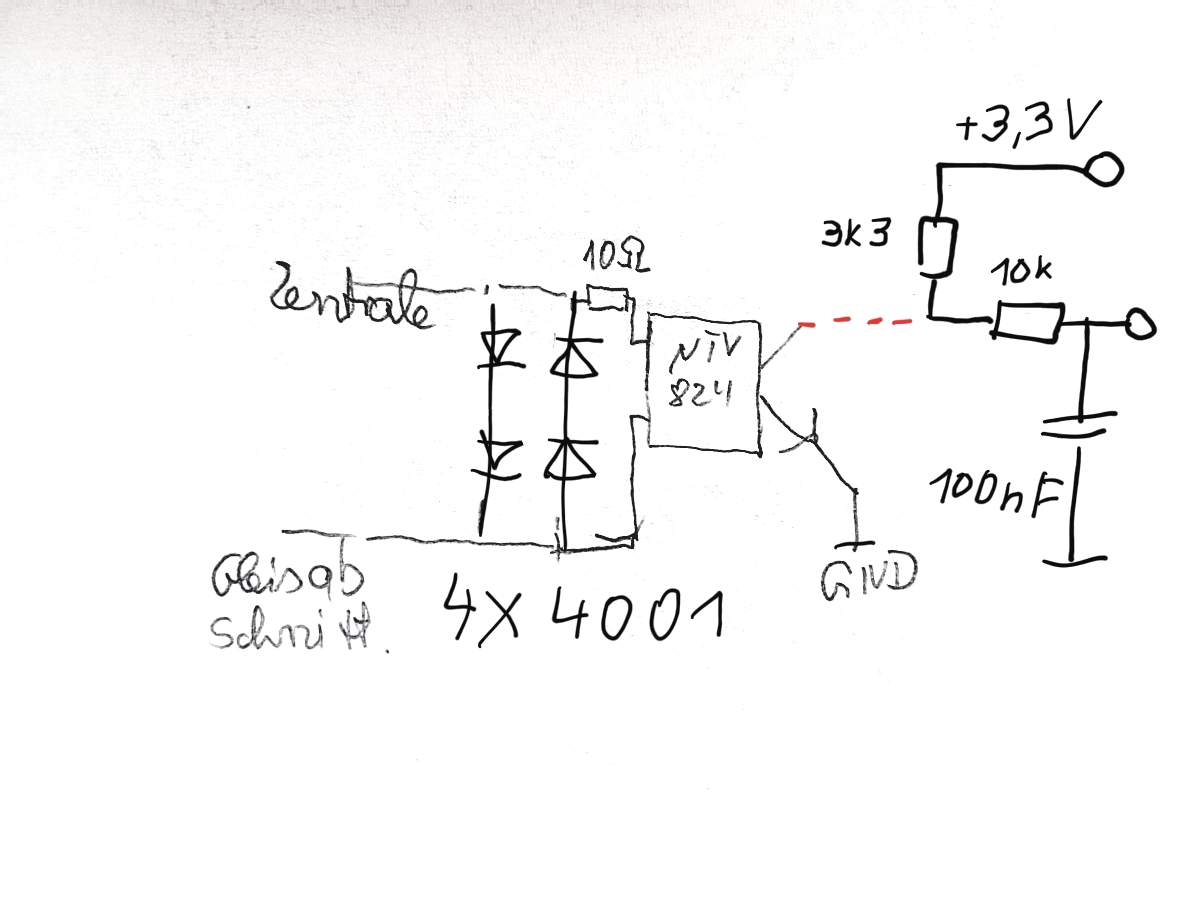 +3,3V
3k3
10Ω
10k
Zentrale
NTV
824
100nF
Gleisab
Schnitt.
4X 4001
GND